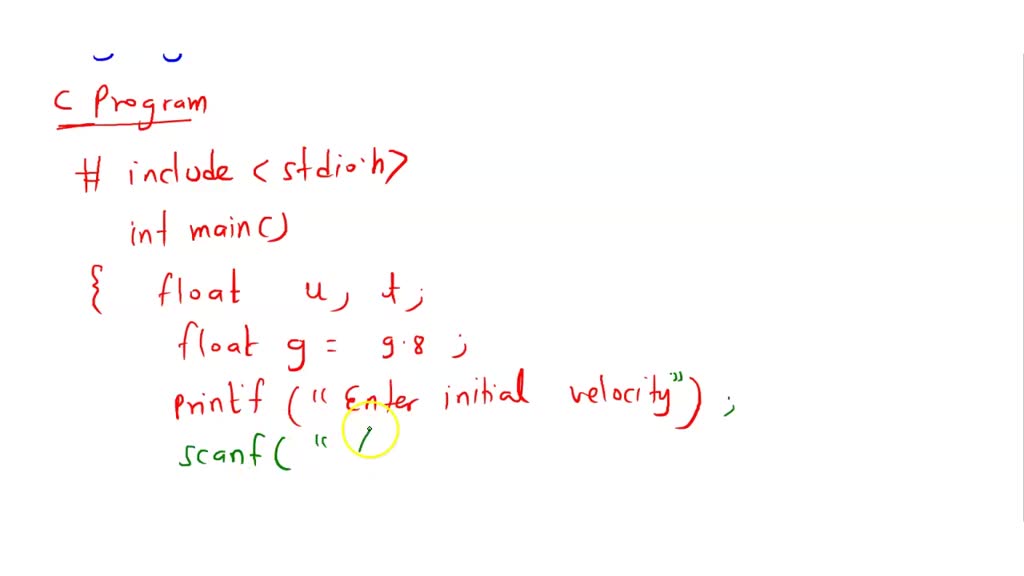 C Program
# include < stdio.h>
int main()
{ float u, t;
float g = 9.8 ;
printf ( " Enter initial velocity" ) ;
scanf ( " /